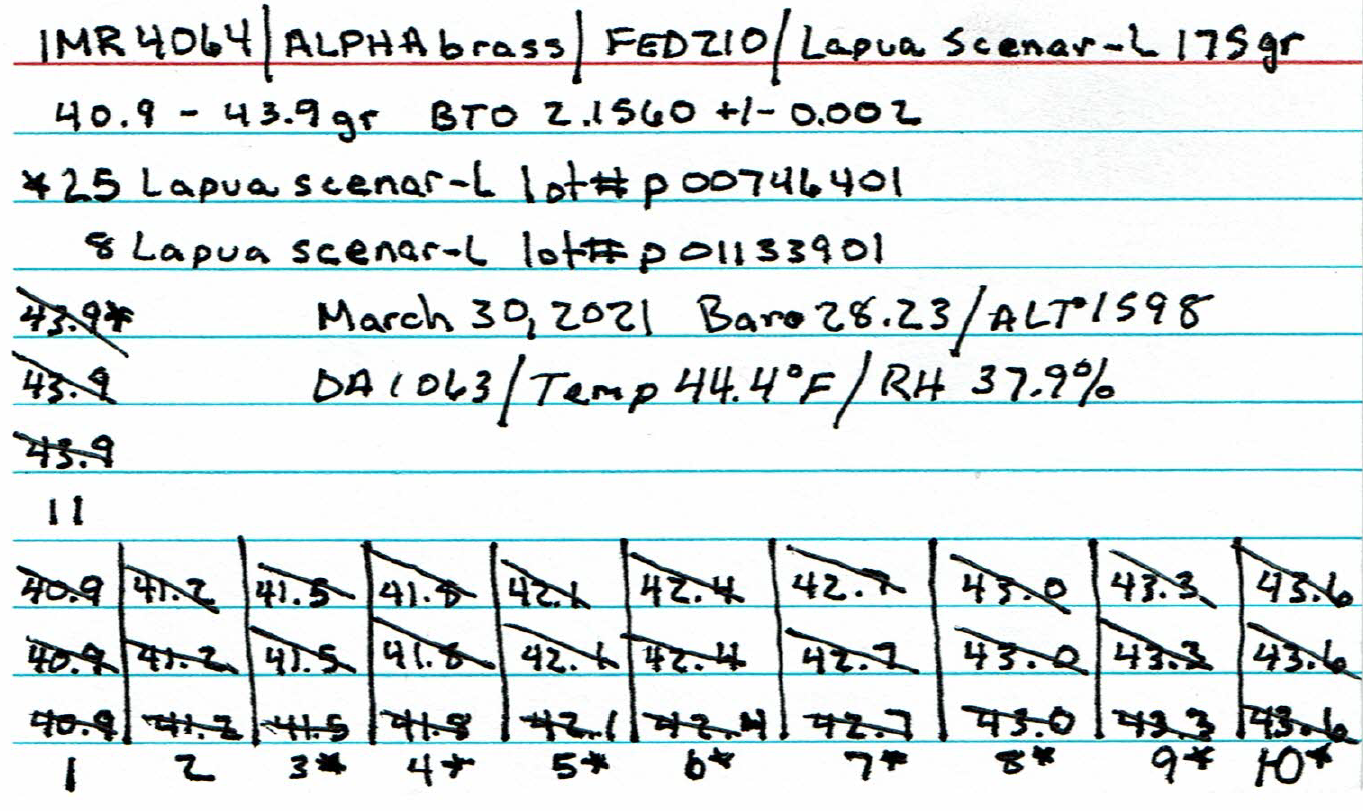 IMR 4064/ALPHA brass/FED210/Lapua Scenar-L 175gr
40.9 - 43.9gr BTO 2.1560 +/- 0.002
*25 Lapua scenar-L lot# p00746401
8 Lapua scenar-L lot# p01133901
43.9* March 30, 2021 Baro 28.23/ALT 1598
43.9 DA 1063/Temp 44.4°F/RH 37.9%
43.9
11
40.9 41.2 41.5 41.8 42.1 42.4 42.7 43.0 43.3 43.6
40.9 41.2 41.5 41.8 42.1 42.4 42.7 43.0 43.3 43.6
40.9 41.2 41.5 41.8 42.1 42.4 42.7 43.0 43.3 43.6
1 2 3* 4* 5* 6* 7* 8* 9* 10*